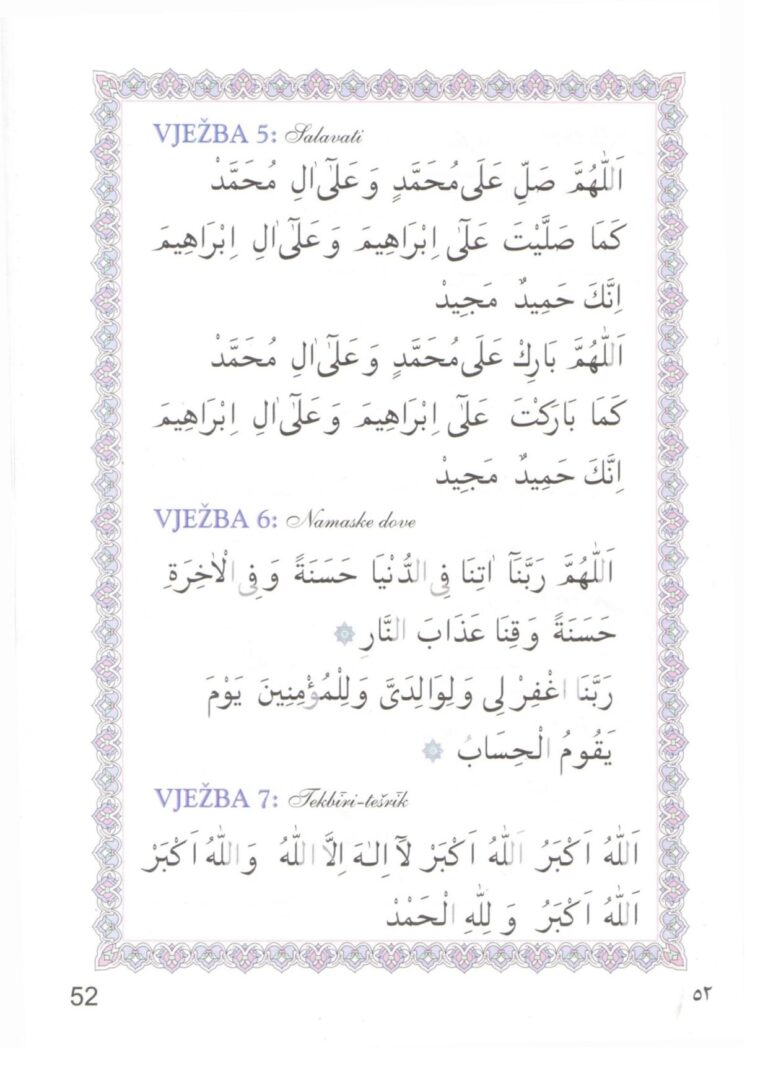 VJEŽBA 5: Salavati
اَللّٰهُمَّ صَلِّ عَلَى مُحَمَّدٍ وَ عَلٰٓى اٰلِ مُحَمَّدْ
كَمَا صَلَّيْتَ عَلٰٓى اِبْرَاهِيمَ وَ عَلٰٓى اٰلِ اِبْرَاهِيمَ
اِنَّكَ حَمِيدٌ مَجِيدْ
اَللّٰهُمَّ بَارِكْ عَلَى مُحَمَّدٍ وَ عَلٰٓى اٰلِ مُحَمَّدْ
كَمَا بَارَكْتَ عَلٰٓى اِبْرَاهِيمَ وَ عَلٰٓى اٰلِ اِبْرَاهِيمَ
اِنَّكَ حَمِيدٌ مَجِيدْ
VJEŽBA 6: Namaske dove
اَللّٰهُمَّ رَبَّنَآ اٰتِنَا فِى الدُّنْيَا حَسَنَةً وَ فِى الْاٰخِرَةِ
حَسَنَةً وَ قِنَا عَذَابَ النَّارِ
رَبَّنَا اغْفِرْ لِى وَ لِوَالِدَىَّ وَ لِلْمُؤْمِنِينَ يَوْمَ
يَقُومُ الْحِسَابُ
VJEŽBA 7: Tekbiri-tešrik
اَللّٰهُ اَكْبَرُ اَللّٰهُ اَكْبَرْ لَآ اِلٰهَ اِلَّا اللّٰهُ وَ اللّٰهُ اَكْبَرْ
اَللّٰهُ اَكْبَرُ وَ لِلّٰهِ الْحَمْدْ
52
٥٢